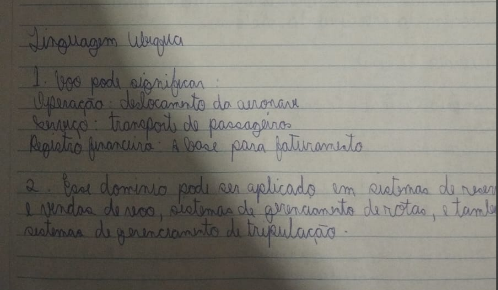 Linguagem Ubíqua
1. Voo pode significar:
Operação: deslocamento da aeronave
Serviço: transporte de passageiros
Registro financeiro: A base para faturamento
2. Esse domínio pode ser aplicado em sistemas de reser
e vendas de voo, sistemas de gerenciamento de rotas, e també
sistemas de gerenciamento de tripulação.